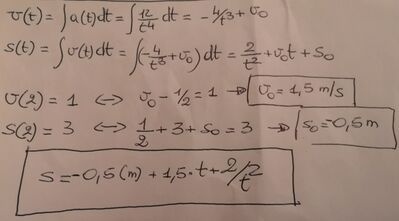 υ(t) = ∫a(t)dt = ∫12/t⁴ dt = -4/t³ + υ₀
s(t) = ∫υ(t)dt = ∫(-4/t³ + υ₀) dt = 2/t² + υ₀t + s₀
υ(2) = 1 ⟺ υ₀ - 1/2 = 1 → υ₀ = 1,5 m/s
s(2) = 3 ⟺ 1/2 + 3 + s₀ = 3 → s₀ = -0,5 m
s = -0,5 (m) + 1,5·t + 2/t²